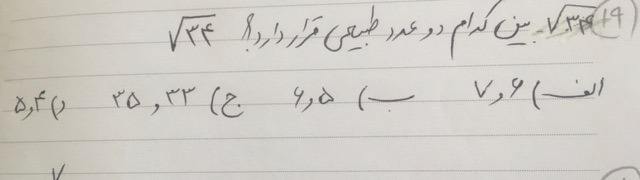 ۱۹) √۳۴ بین کدام دو عدد طبیعی قرار دارد؟ √۳۴
الف) ۶ و ۷ ب) ۵ و ۶ ج) ۳۳ و ۳۵ د) ۴ و ۵